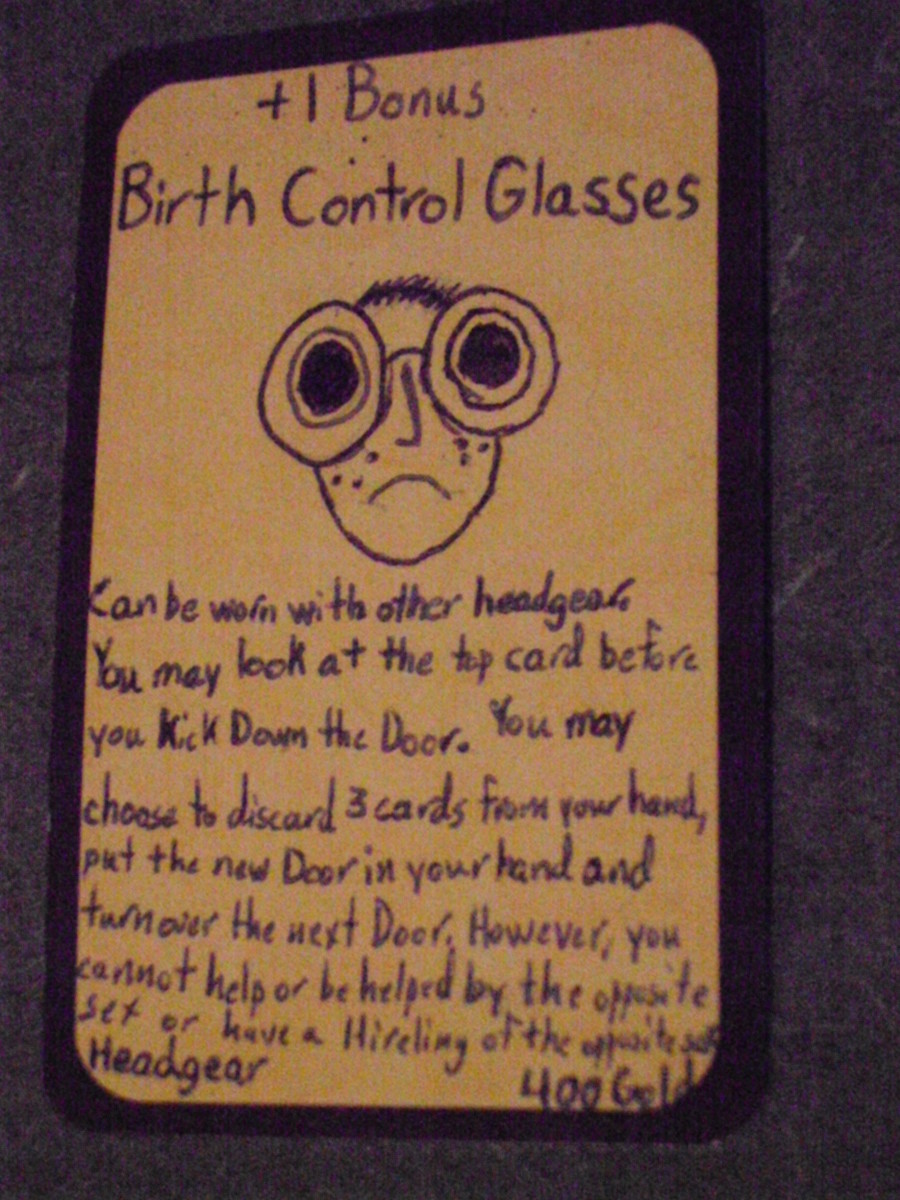 +1 Bonus
Birth Control Glasses
Can be worn with other headgear.
You may look at the top card before
you Kick Down the Door. You may
choose to discard 3 cards from your hand,
put the new Door in your hand and
turn over the next Door. However, you
cannot help or be helped by the opposite
sex or have a Hireling of the opposite sex
Headgear
400 Gold